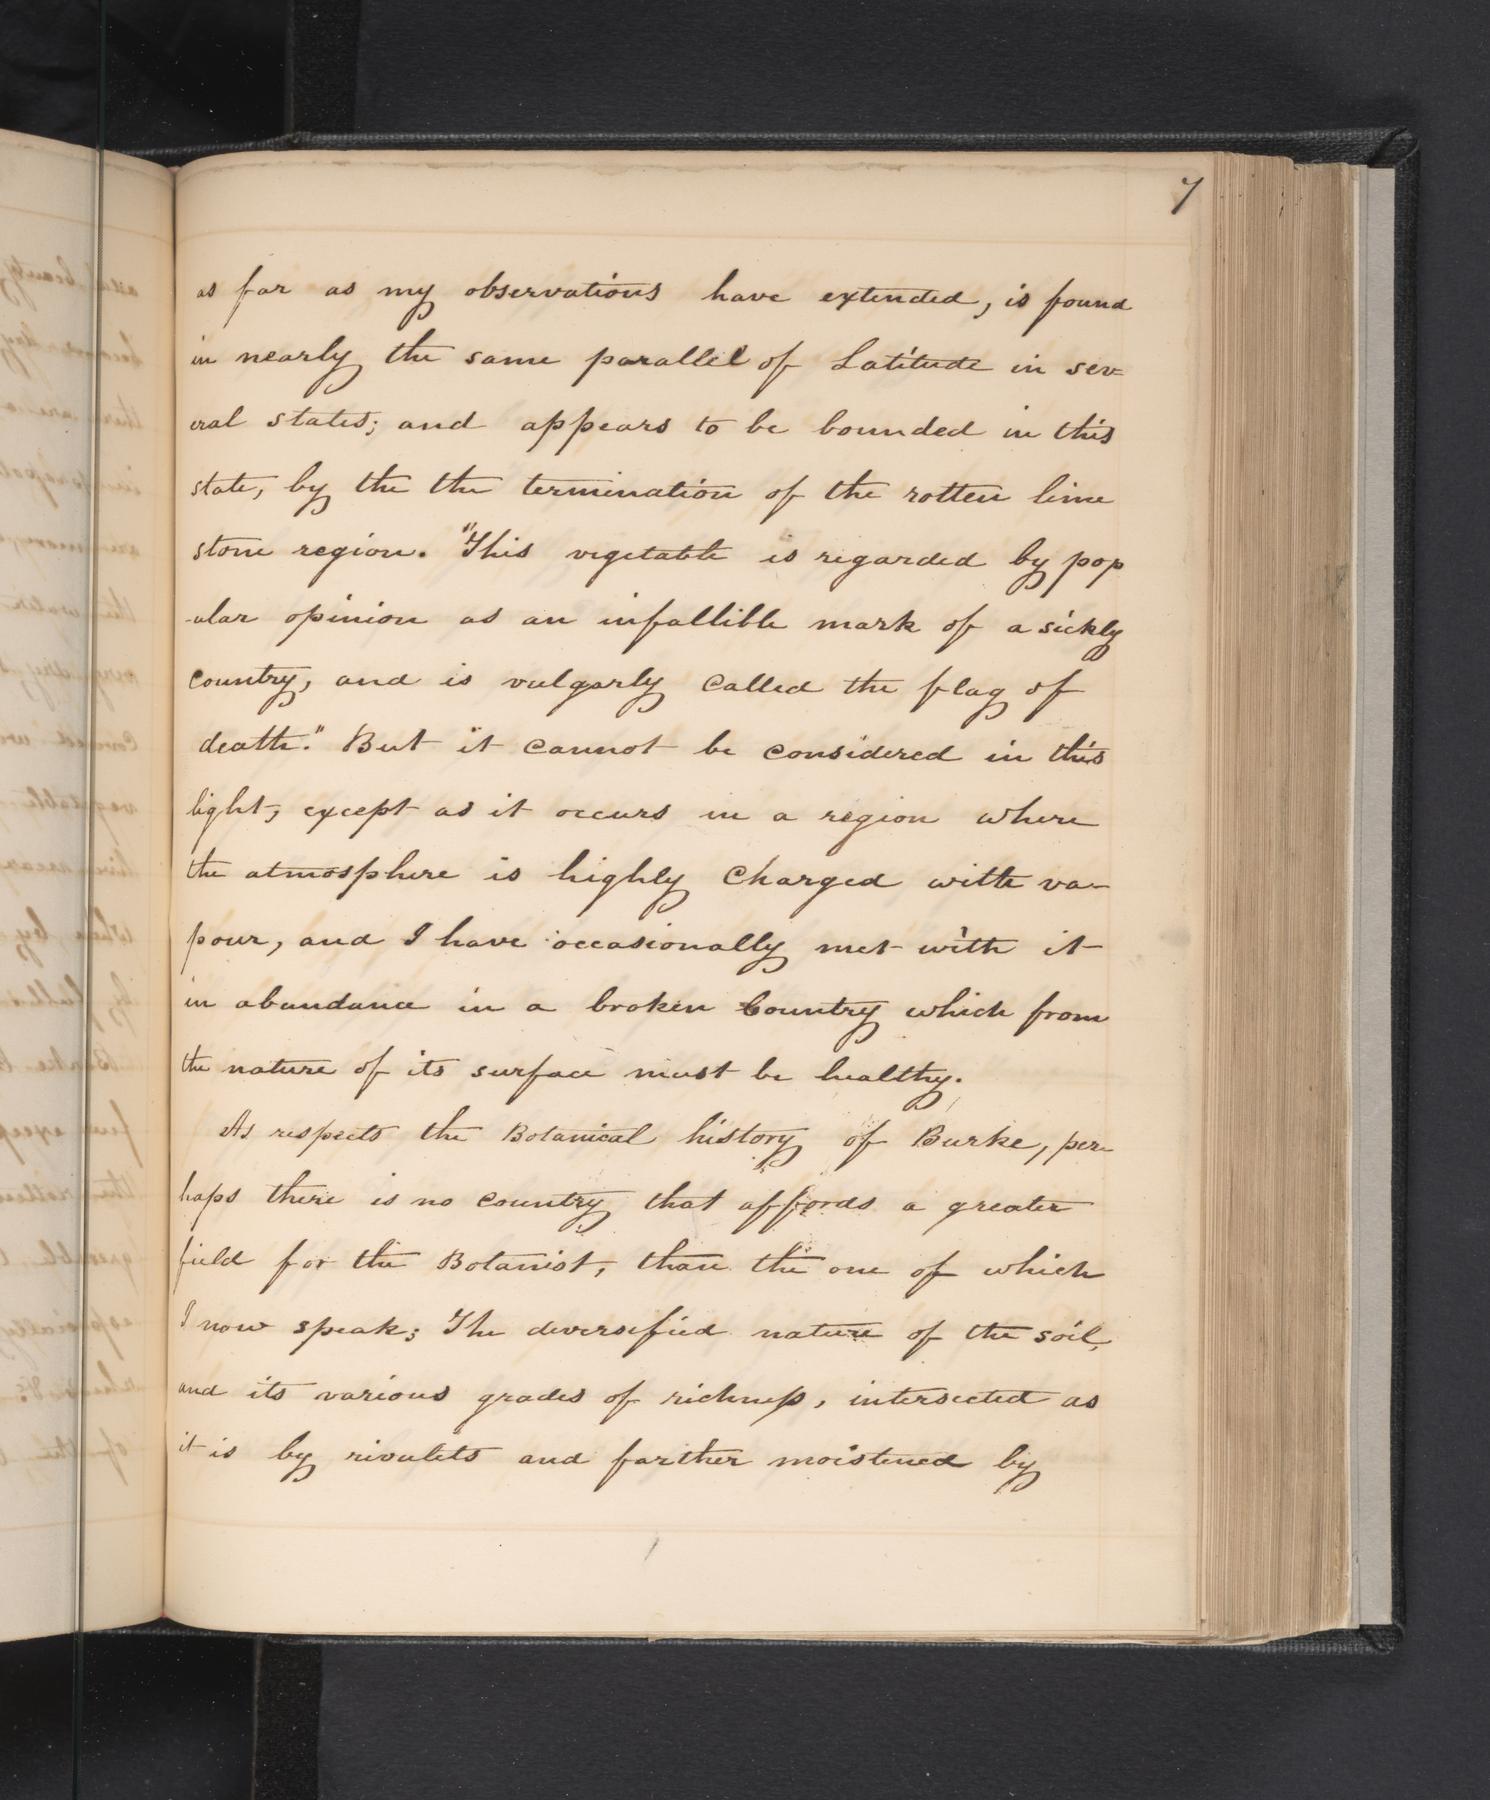 7
as far as my observations have extended, is found
in nearly the same parallel of Latitude in sev=
eral states; and appears to be bounded in this
state, by the the termination of the rotten lime
stone region. "This vegetable is regarded by pop
-ular opinion as an infallible mark of a sickly
country, and is vulgarly called the flag of
death." But it cannot be considered in this
light, except as it occurs in a region where
the atmosphere is highly charged with va-
pour, and I have occasionally met with it
in abundance in a broken Country which from
the nature of its surface must be healthy.
As respects the Botanical history of Burke, per
haps there is no country that affords a greater
field for the Botanist, than the one of which
I now speak; The diversified nature of the soil,
and its various grades of richness, intersected as
it is by rivulets and farther moistened by